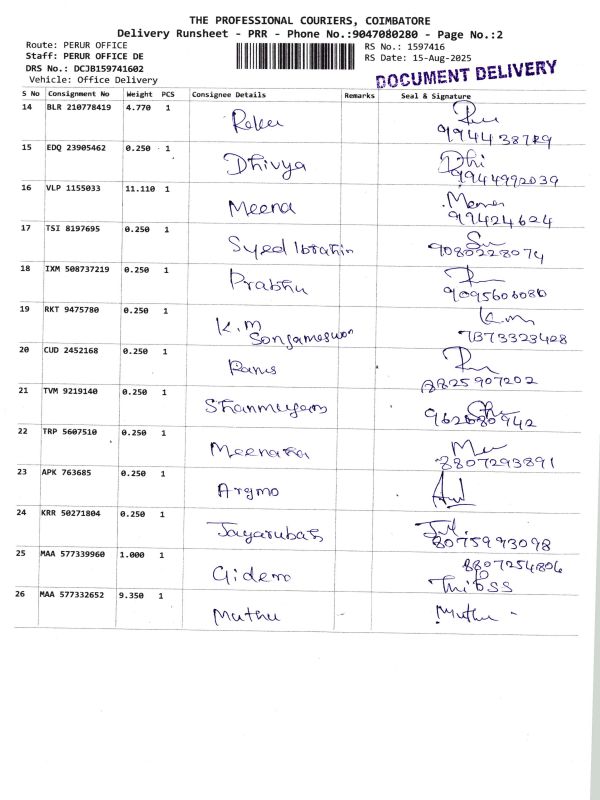 THE PROFESSIONAL COURIERS, COIMBATORE
Delivery Runsheet - PRR - Phone No.:9047080280 - Page No.:2
Route: PERUR OFFICE
RS No.: 1597416
Staff: PERUR OFFICE DE
RS Date: 15-Aug-2025
DRS No.: DCJB159741602
Vehicle: Office Delivery
DOCUMENT DELIVERY
S No Consignment No Weight PCS Consignee Details Remarks Seal & Signature
14 BLR 210778419 4.770 1 Reka
15 EDQ 23905462 0.250 1 Dhivya Dhi
9944992039
16 VLP 1155033 11.110 1 Meena
99424624
17 TSI 8197695 0.250 1 Syed Ibrahim
9080228074
18 IXM 508737219 0.250 1 Prabhu
9095606080
19 RKT 9475780 0.250 1 K.M K.m
7373323408
20 CUD 2452168 0.250 1
8825907202
21 TVM 9219140 0.250 1
22 TRP 5607510 0.250 1
8807293891
23 APK 763685 0.250 1
24 KRR 50271804 0.250 1
8075993098
25 MAA 577339960 1.000 1
8807254806
26 MAA 577332652 9.350 1 Muthu Muthu